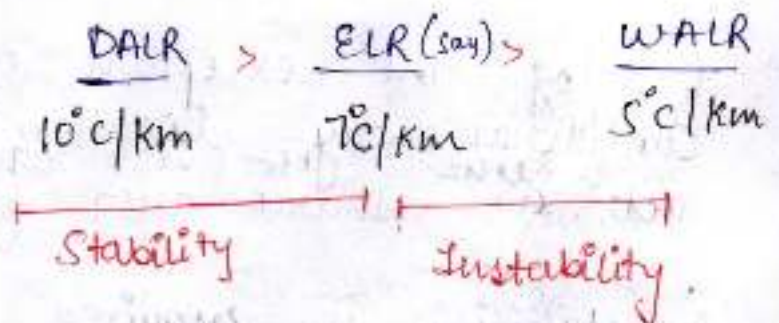 DALR > ELR (say) > WALR
10°C/Km 7°C/Km 5°C/Km
Stability Instability.